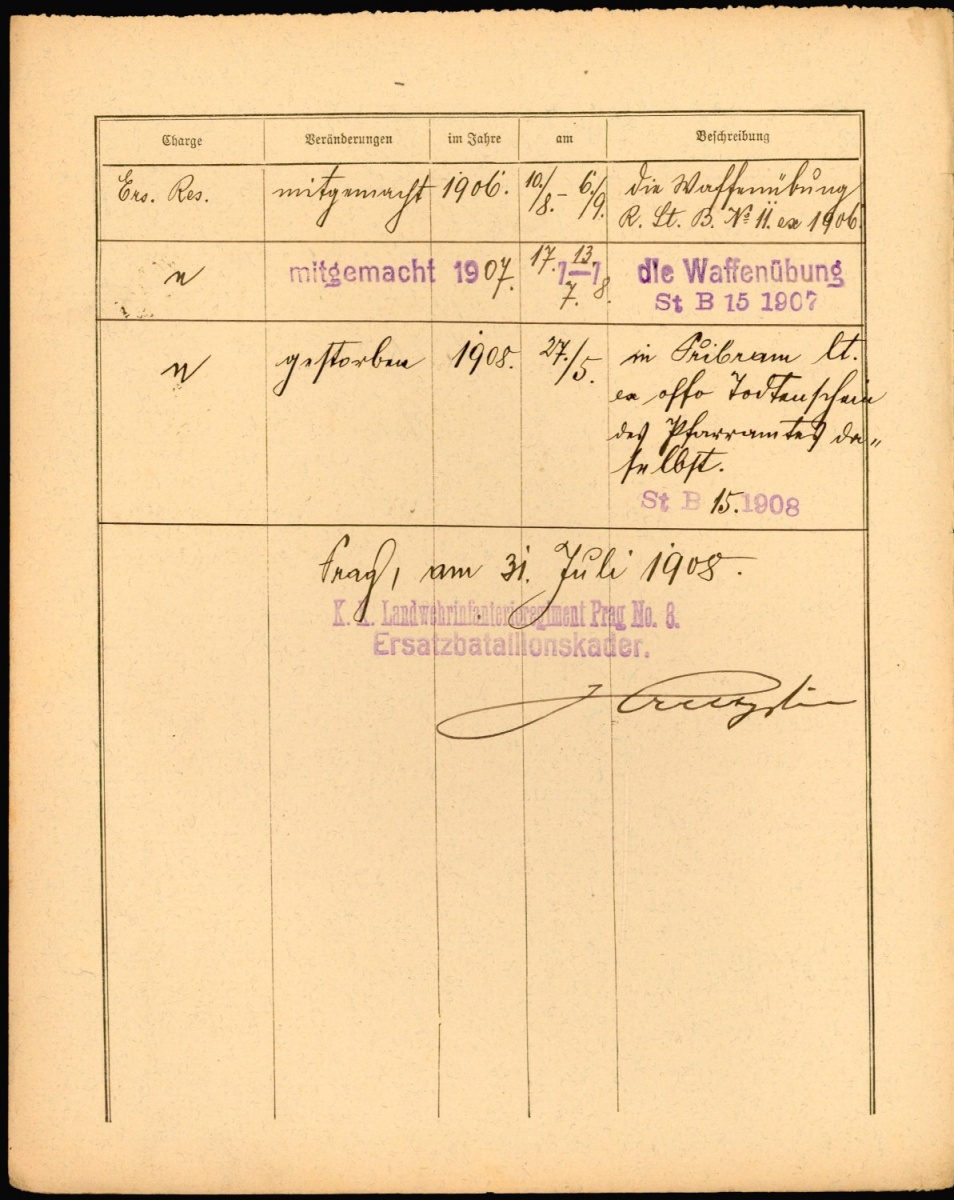 Charge Veränderungen im Jahre am Beschreibung
Ers. Res. mitgemacht 1906. 10./8. – 6./9. die Waffenübung
R. St. B. № 11. ex 1906
" mitgemacht 1907. 17./7 – 13./8. die Waffenübung
St B 15 1907
" gestorben 1908. 27./5. in Pribram lt.
ex offo Todtenschein
des Pfarramtes da„
selbst.
St B 15. 1908
Prag, am 31. Juli 1908.
K. K. Landwehrinfanterieregiment Prag No. 8.
Ersatzbataillonskader.